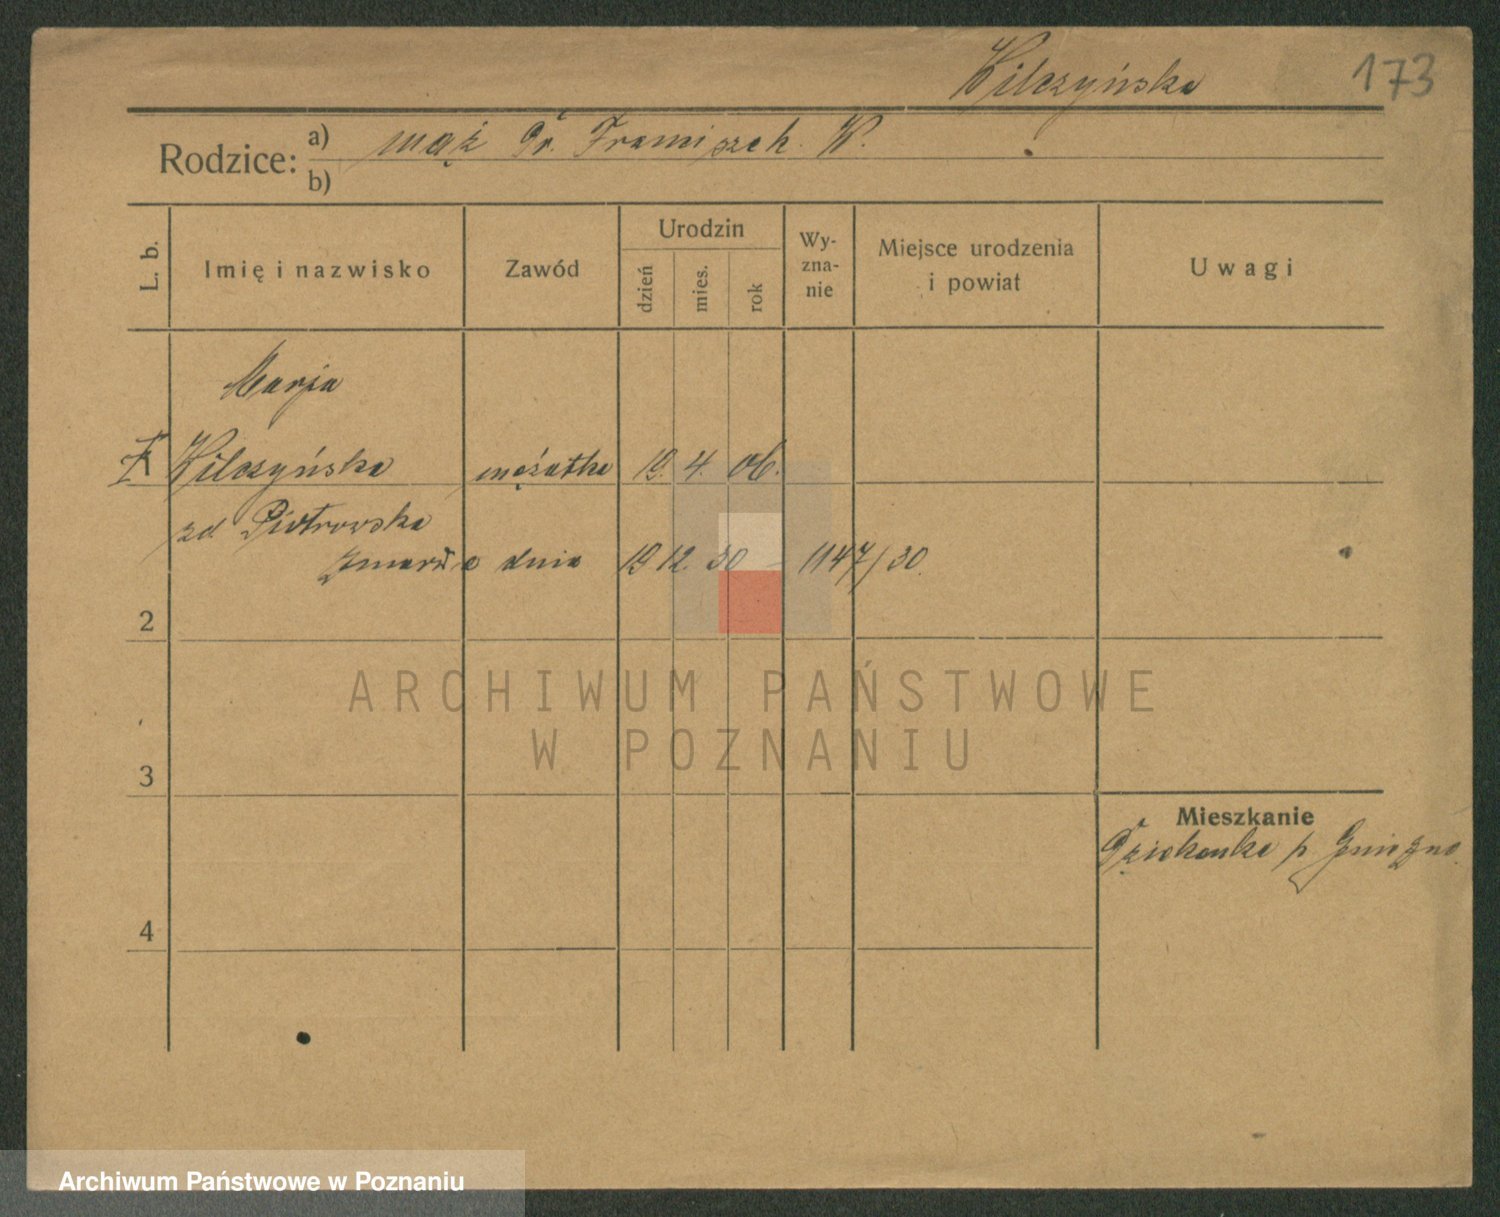 Wilczyńska 173
Rodzice: a) mąż Dr. Franciszek W.
b)
L. b. Imię i nazwisko Zawód Urodzin dzień mies. rok Wyzna-nie Miejsce urodzenia i powiat Uwagi
Marja
Wilczyńska mężatka 19. 4. 06.
zd. Piotrowska
Zmarła dnia 19 12 30 – 1147/30.
2
3
Mieszkanie
Dziekanka p. Gniezno
4
ARCHIWUM PAŃSTWOWE
W POZNANIU
Archiwum Państwowe w Poznaniu